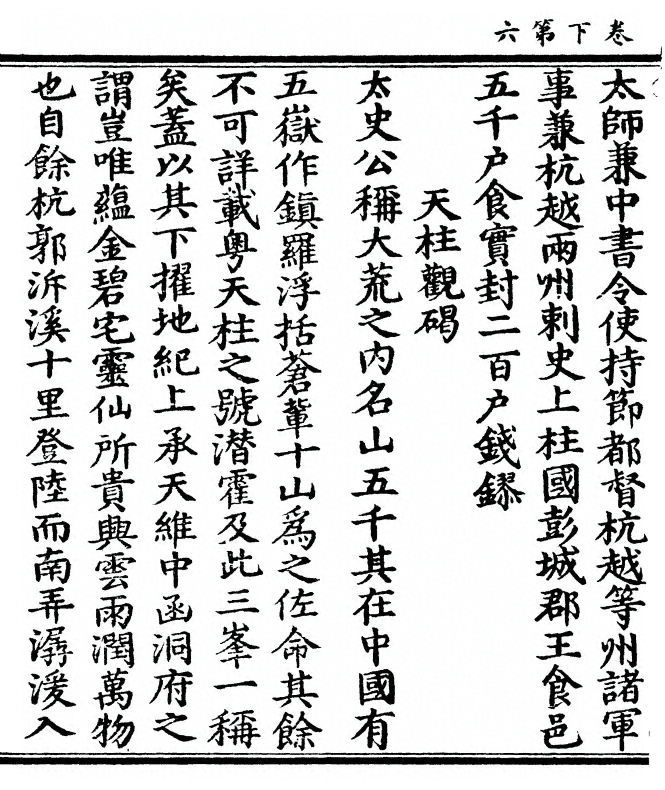 卷下第六
太師兼中書令使持節都督杭越等州諸軍
事兼杭越兩州刺史上柱國彭城郡王食邑
五千户食實封二百户錢鏐
天柱觀碣
太史公稱大荒之内名山五千其在中國有
五嶽作鎮羅浮括蒼輩十山爲之佐命其餘
不可詳載粤天柱之號潜霍及此三峯一稱
矣蓋以其下擢地紀上承天維中函洞府之
謂豈唯蘊金碧宅靈仙所貴興雲雨潤萬物
也自餘杭郭泝溪十里登陸而南弄潺湲入